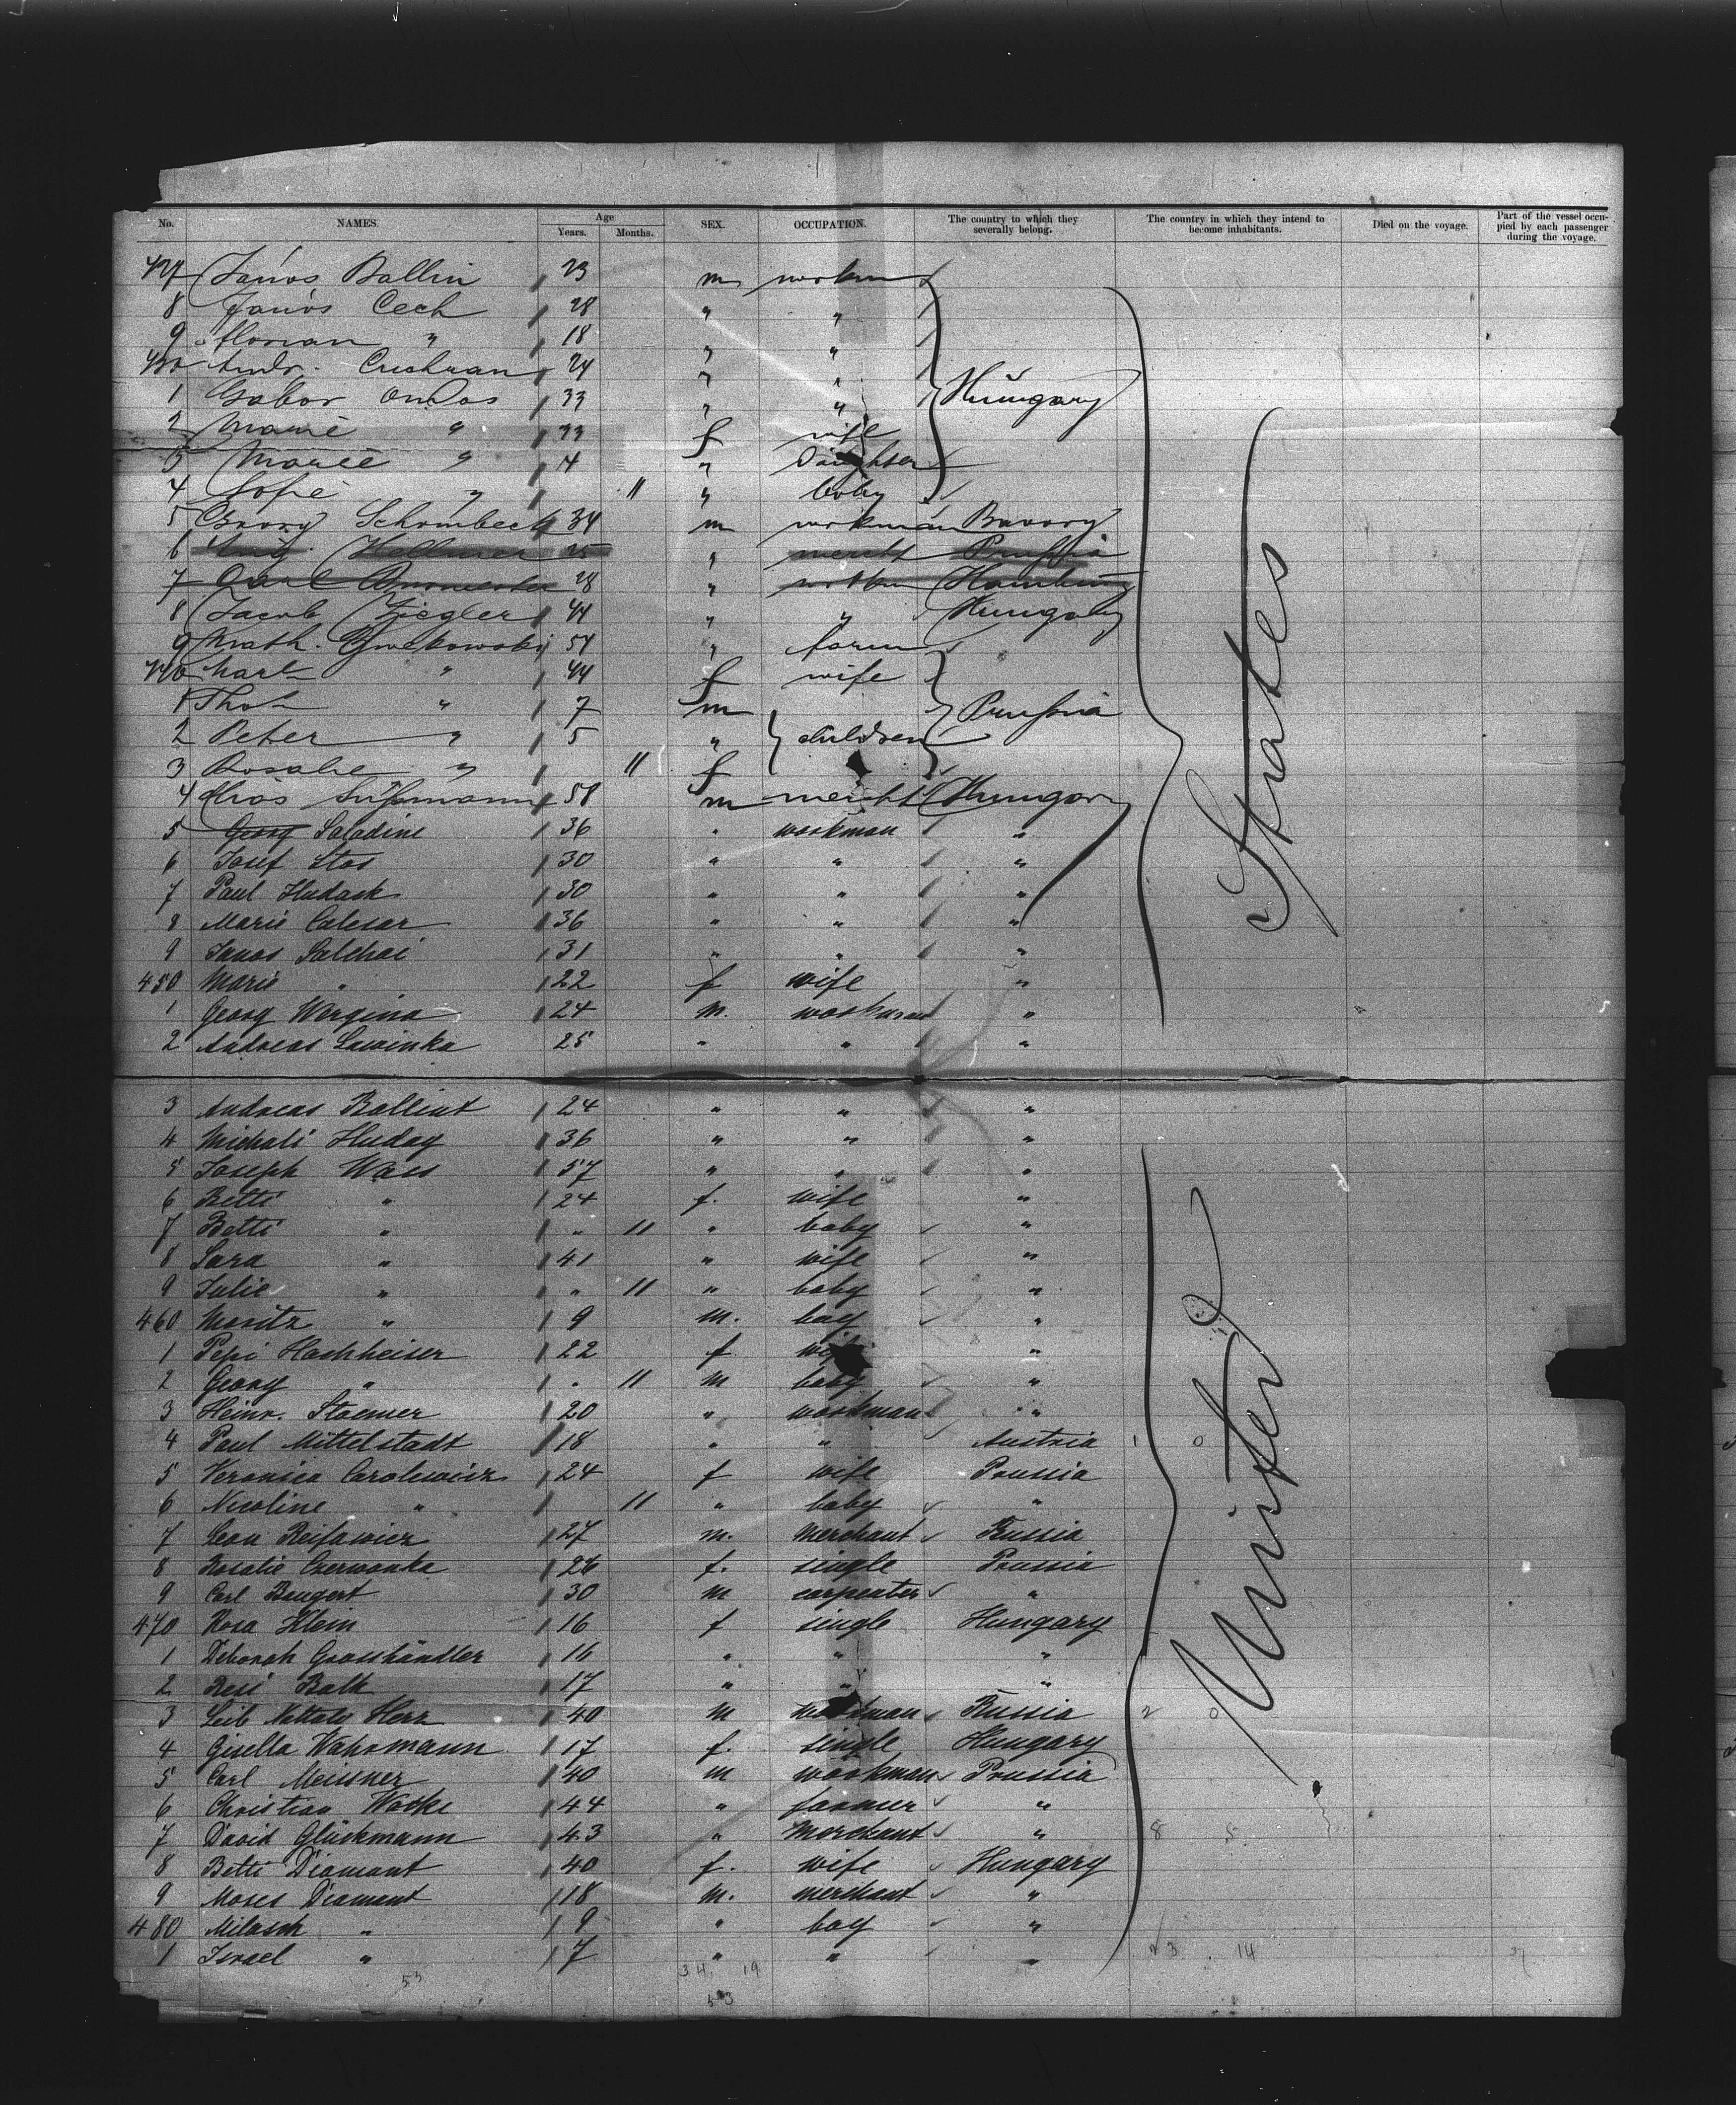 No. NAMES. Age Years. Months. SEX. OCCUPATION. The country to which they severally belong. The country in which they intend to become inhabitants. Died on the voyage. Part of the vessel occupied by each passenger during the voyage.
427 János Ballin 23 m workm
8 János Cech 28 " "
9 Florian " 18 " "
430 Andr. Cushran 24 " "
1 Gabor Ondos 33 " " Hungary
2 Marie " 33 f wife
3 Marie " 4 " Daughter
4 Sofie " 11 " baby
5 Georg Schombeck 34 m workman Bavary
6 Aug. Hellmer 25 " mercht Prussia
7 Carl 28 " workm Hamburg
8 Jacob Ziegler 44 " " Hungary
9 Math. 54 " farm
440 Mart " 44 f wife
1 Tho " 7 m Prussia
2 Peter " 5 " children
3 Rosalie " 11 f
4 Elias Süssmann 58 m mercht Hungary
5 Georg Saladine 36 " workman "
6 Josef Stas 30 " " "
7 Paul Hudack 30 " " "
8 Maris Calesar 36 " " "
9 Janos Salchai 31 " " "
450 Marie " 22 f wife "
1 Georg Wergina 24 m. workman "
2 Andreas Lawinka 25 " " "
3 Andreas Ballint 24 " " "
4 Michali Huday 36 " " "
5 Joseph Wass 57 " " "
6 Betti " 24 f. wife "
7 Betti " " 11 " baby "
8 Sara " 41 " wife "
9 Julie " " 11 " baby "
460 Moritz " 9 m. boy "
1 Pepi Hochheiser 22 f wife "
2 Georg " " 11 m baby "
3 Heinr. Stoemer 20 " workman "
4 Paul Mittelstadt 18 " " Austria
5 Veronica Carolewicz 24 f wife Prussia
6 Nicoline " 11 " baby "
7 Leon Reifawicz 27 m. merchant Russia
8 Rosalie Czerwonka 26 f. single Prussia
9 Carl Baugert 30 m carpenter "
470 Rosa Klein 16 f single Hungary
1 Deborah Grosshändler 16 " " "
2 Resi Balk 17 " " "
3 Leib Nettaly Herz 40 m workman Russia
4 Gisella Wahrmann 17 f. single Hungary
5 Carl Meissner 40 m workman Prussia
6 Christian Wocke 44 " farmer "
7 David Glückmann 43 " merchant "
8 Betti Diamant 40 f. wife Hungary
9 Moses Diamant 18 m. merchant "
480 Milasch " 9 " boy "
1 Israel " 7 " " "
53 34 19 23 14
53
States
United